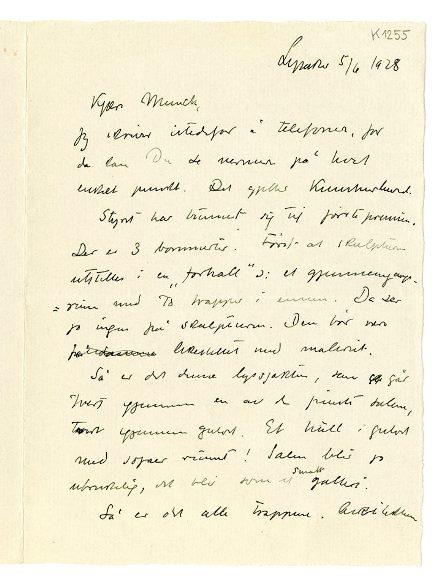 K1255
Lysaker 5/6 1928
Kjære Munch,
Jeg skriver istedefor å telefonere, for
da kan Du se nermere på hvert
enkelt punkt. Det gjelder Kunstnerhuset.
Styret har bundet sig til første premien.
Der er 3 bommerter. Først at skulpturen
utstilles i en "forhall" ɔ: et gjennemgangs-
rum med 
 trapper i enden. Da ser
jo ingen på skulpturen. Den bør være
 likestillet med maleriet.
Så er det denne lyssjakten, som går
tvert gjennem en av de fineste salene,
tvert gjennem gulvet. Et hull i gulvet
med sofaer rundt! Salen blir jo
ubrukelig, det blir som et smalt galleri.
Så er det alle trappene.